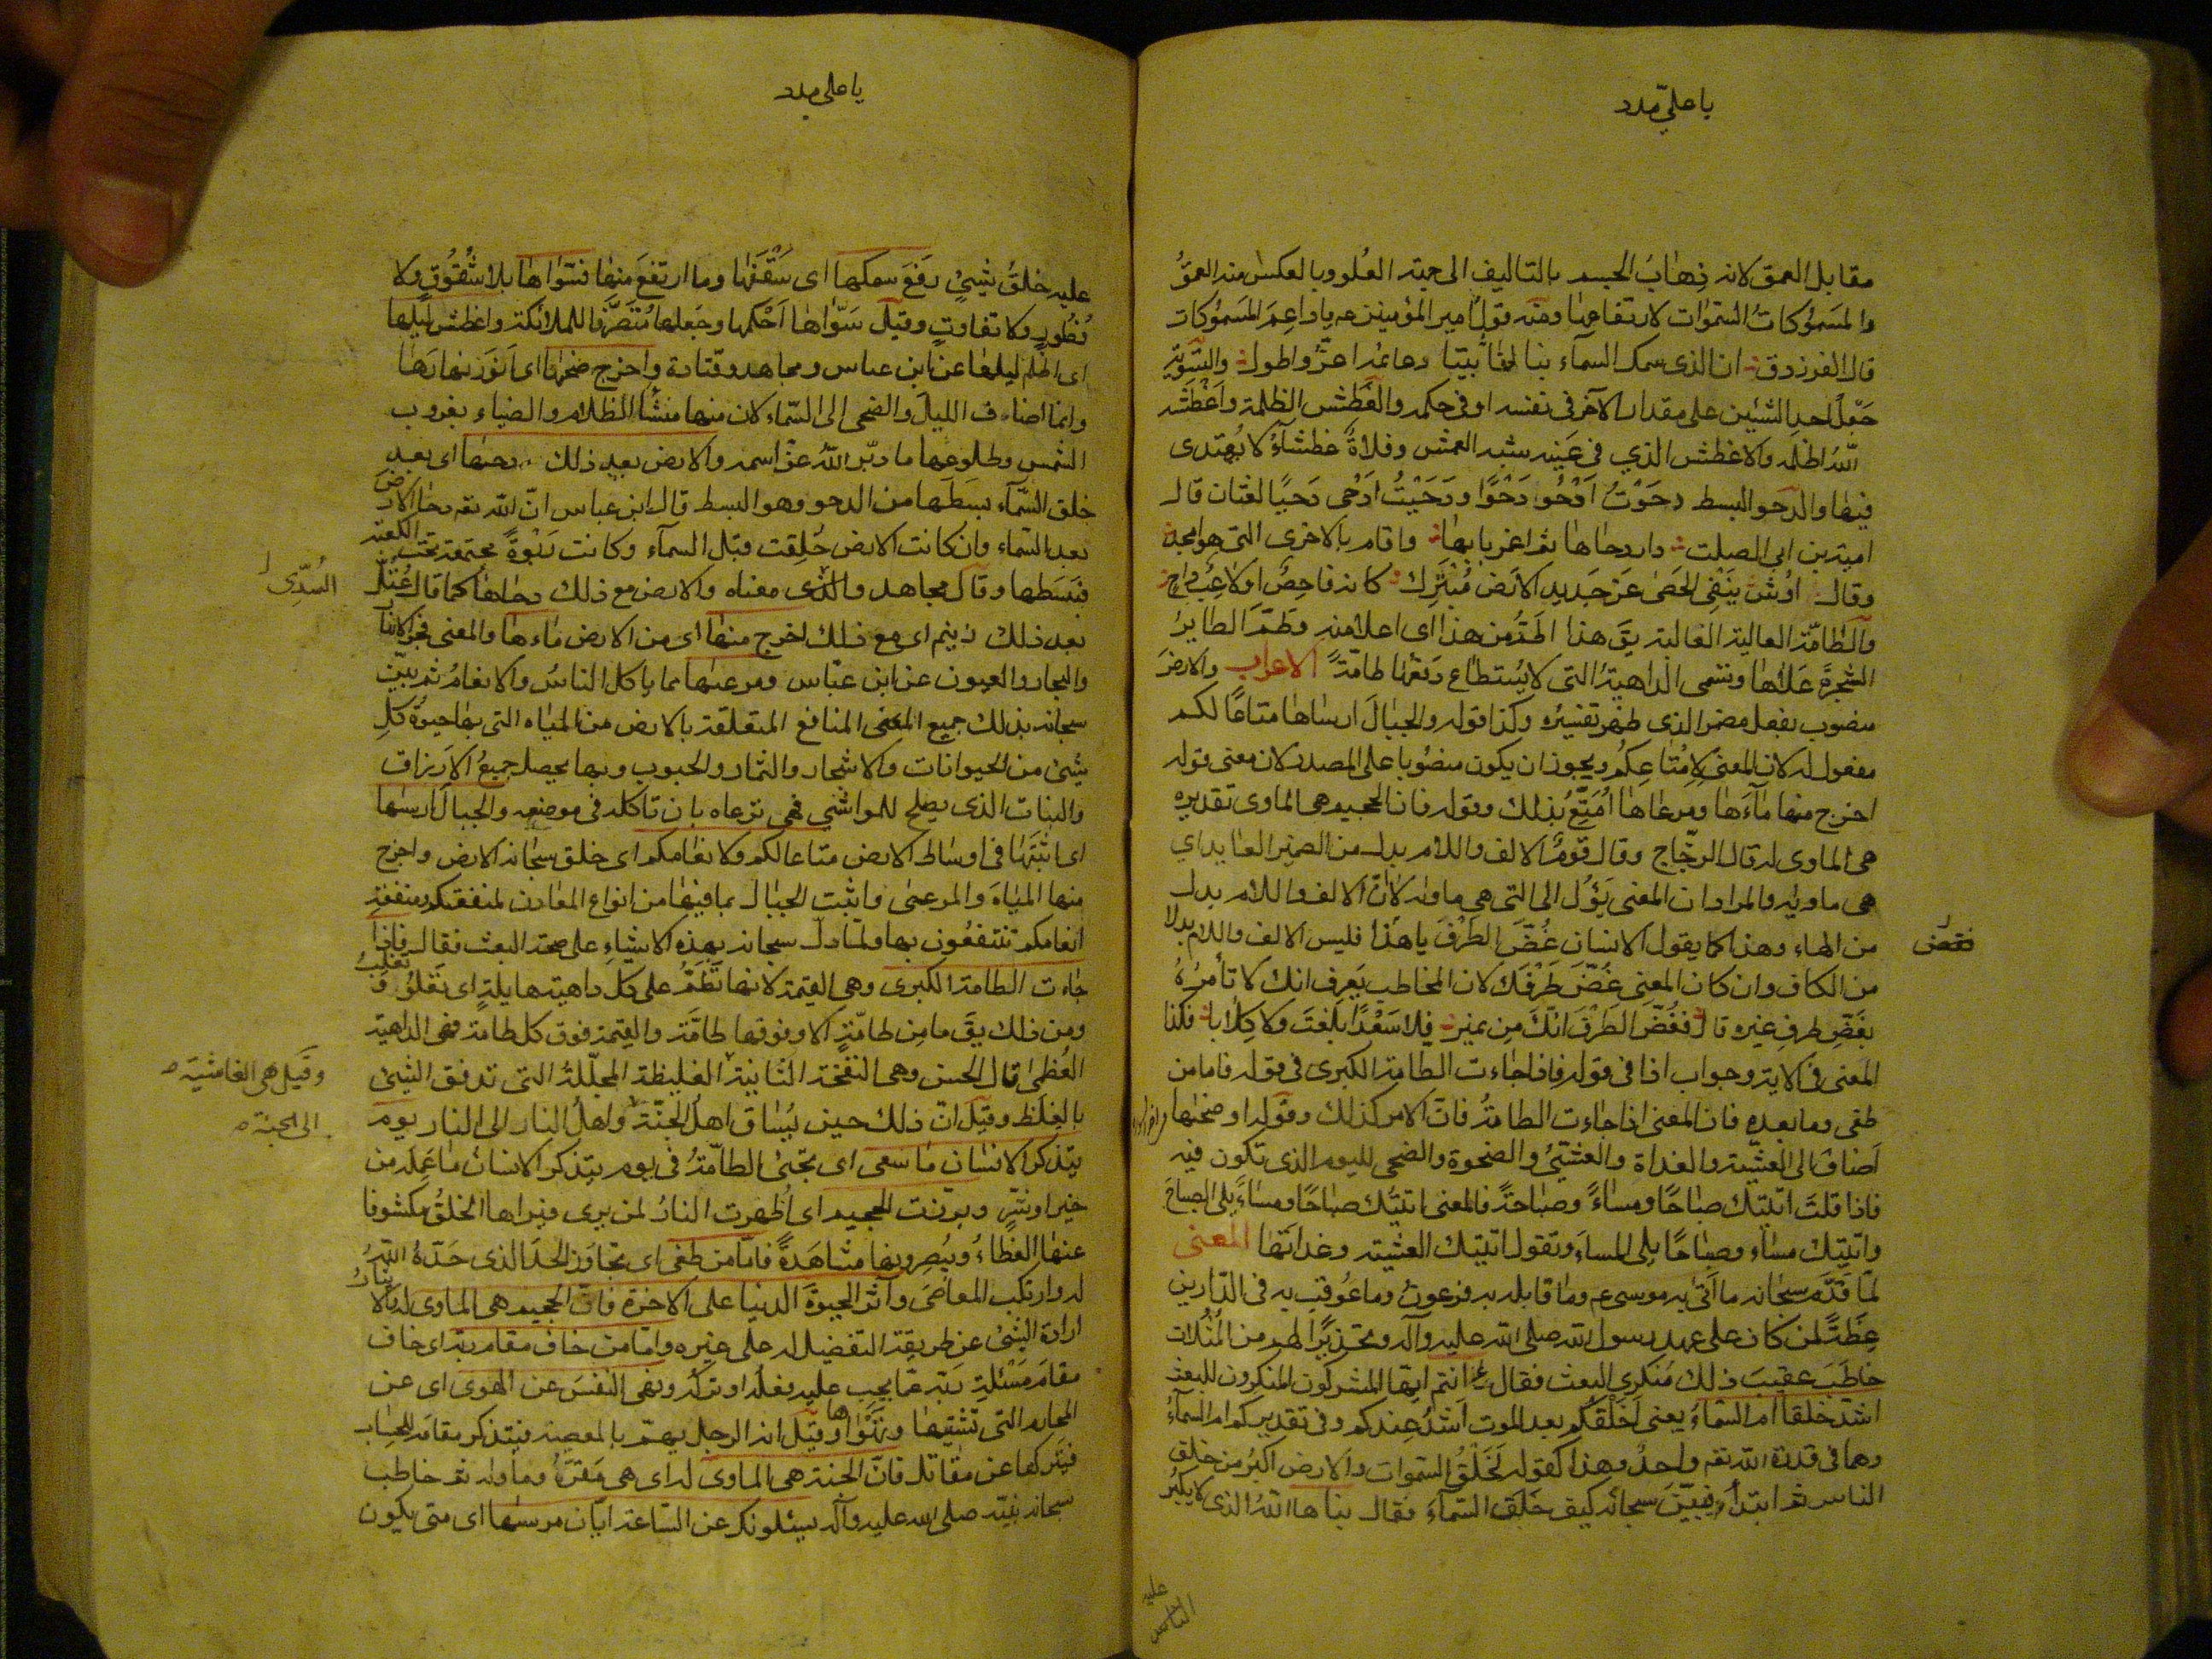 يا علي مدد
مقابل العمق لانه ذهاب الجسم بالتاليف الى جهة العلو وبالعكس منه العمق
والمسموكات السموات لارتفاعها ومنه قول امير المؤمنين ع يا داعم المسموكات
قال الفرزدق ان الذى سمك السمآء بنا لنا بيتا دعائمه اعز واطول والتسوية
جعل احد الشيئين على مقدار الآخر فى نفسه او فى حكمه والغطش الظلمة واغطشه
الله اظلمه والاغطش الذي فى عينه شبه العمش وفلاة غطشآء لا يهتدى
فيها والدحو البسط دحوت ادحو دحوا ودحيت ادحى دحيا لغتان قال
امية بن ابى الصلت دار دحاها ثم اعمر بابها واقام بالاخرى التى هى امجد
وقال اوس ينفى الحصى عن جديد الارض مبترك كانه فاحص او لاعب داح
والطامة العالية الغالبة يق هذا اطم من هذا اى اعلا منه وطم الطاير
الشجرة علاها وتسمى الداهية التى لا يستطاع دفعها طامة الاعراب والارض
منصوب بفعل مضمر الذى ظهر تفسيره وكذا قوله والجبال ارساها متاعا لكم
مفعول له لان المعنى لامتاعكم ويجوز ان يكون منصوبا على المصدر لان معنى قوله
اخرج منها مآءها ومرعاها امتع بذلك وقوله فان الجحيم هى الماوى تقديره
هى الماوى له قال الزجاج وقال قوم الالف واللام بدل من الضمير العايد اي
هى ماويه والمراد ان المعنى يؤل الى التى هى ماواه لان الالف واللام بدل
من الهاء وهذا كما يقول الانسان غض الطرف يا هذا فليس الالف واللام بدلا
من الكاف وان كان المعنى غض طرفك لان المخاطب يعرف انك لا تأمره
بغض طرف غيره قال فغض الطرف انك من نمير فلا سعدا بلغت ولا كلابا فكذا
المعنى فى الاية وجواب اذا فى قوله فاذا جاءت الطامة الكبرى فى قوله فاما من
طغى وما بعده فان المعنى اذا جاءت الطامة فان الامر كذلك وقوله او ضحيها
اضاف الى العشية والغداة والعشى والضحوة والضحى لليوم الذى تكون فيه
فاذا قلت اتيتك صباحا ومساء وصباحة فالمعنى اتيتك صباحا ومساء يلى الصباح
واتيتك مساء وصباحا يلى المساء وتقول اتيتك العشية وغداتها المعنى
لما قدم سبحانه ما اتى به موسى ع وما قابله به فرعون وما عوقب به فى الدارين
عظة لمن كان على عهد رسول الله صلى الله عليه وآله وتحذيرا لهم من المثلات
خاطب عقيب ذلك منكرى البعث فقال ءانتم ايها المشركون المنكرون للبعث
اشد خلقا ام السماء يعنى اخلقكم بعد الموت اشد عندكم وفى تقديركم ام السمآء
وهما فى قدرة الله تع واحد وهذا كقوله لخلق السموات والارض اكبر من خلق
الناس ثم ابتدأ فبين سبحانه كيف خلق السمآء فقال بناها الله الذى لا يكبر
عليه
يا على مدد
عليه خلق شىئ رفع سمكها اى سقفها وما ارتفع منها فسواها بلا شقوق ولا
فطور ولا تفاوت وقيل سواها احكمها وجعلها متصرفا للملائكة واغطش ليلها
اى اظلم ليلها عن ابن عباس ومجاهد وقتادة واخرج ضحيها اى انور نهارها
وانما اضاف الليل والضحى الى السماء لان منها منشأ الظلام والضياء بغروب
الشمس وطلوعها ما دبر الله عز اسمه والارض بعد ذلك دحيها اى بعد
خلق السمآء بسطها من الدحو وهو البسط قال ابن عباس ان الله تع دحا الارض
بعد السماء وان كانت الارض خلقت قبل السمآء وكانت ربوة مجتمعة تحت الكعبة
فبسطها وقال مجاهد والسدى معناه والارض مع ذلك دحاها كما قال عتل
السدى
بعد ذلك زنيم اى مع ذلك اخرج منها اى من الارض ماءها والمعنى فجر الانهار
والبحار والعيون عن ابن عباس ومرعيها مما ياكل الناس والانعام ثم بين
سبحانه بذلك جميع المعنى المنافع المتعلقة بالارض من المياه التى بها حيوة كل
شىئ من الحيوانات والاشجار والثمار والحبوب وبها يحصل جميع الارزاق
والنبات الذى يصلح للمواشى فهى ترعاه بان تاكله فى موضعه والجبال ارسيها
اى اثبتها فى اوساط الارض متاعا لكم ولانعامكم اى خلق سبحانه الارض واخرج
منها المياه والمرعى واثبت الجبال بما فيها من انواع المعادن لمنفعتكم ومنفعة
انعامكم تنتفعون بها ولما دل سبحانه بهذه الاشياء على صحة البعث فقال فاذا
جاءت الطامة الكبرى وهى القيمة لانها تطم على كل داهية هايلة اى تعلو وتغلب
ومن ذلك يق ما من طامة الا وفوقها طامة والقيمة فوق كل طامة فهى الداهية
العظمى قال الحسن وهى النفخة الثانية الغليظة المجللة التى تدفق الشىئ
وقيل هى الغاشية
بالغلظ وقيل ان ذلك حين يساق اهل الجنة واهل النار الى النار يوم
الى الجنة
يتذكر الانسان ما سعى اى تجىئ الطامة فى يوم يتذكر الانسان ما عمله من
خير او شر وبرزت الجحيم اى اظهرت النار لمن يرى فيراها الخلق مكشوفا
عنها الغطاء ويبصرونها مشاهدة فاما من طغى اى تجاوز الحد الذى حده الله
له وارتكب المعاصى وآثر الحيوة الدنيا على الاخرة فان الجحيم هى الماوى له
ارادة الشىئ عن طريقة التفضيل له على غيره واما من خاف مقام ربه اى خاف
مقام مسئلة ربه عما يجب عليه فعله او تركه ونهى النفس عن الهوى اى عن
المحارم التى تشتهيها وتهواها وقيل ان الرجل يهم بالمعصية فيتذكر مقامه للحساب
فيتركها عن مقاتل فان الجنة هى الماوى له اى هى مقره وماواه ثم خاطب
سبحانه نبيه صلى الله عليه وآله يسئلونك عن الساعة ايان مرسيها اى متى يكون